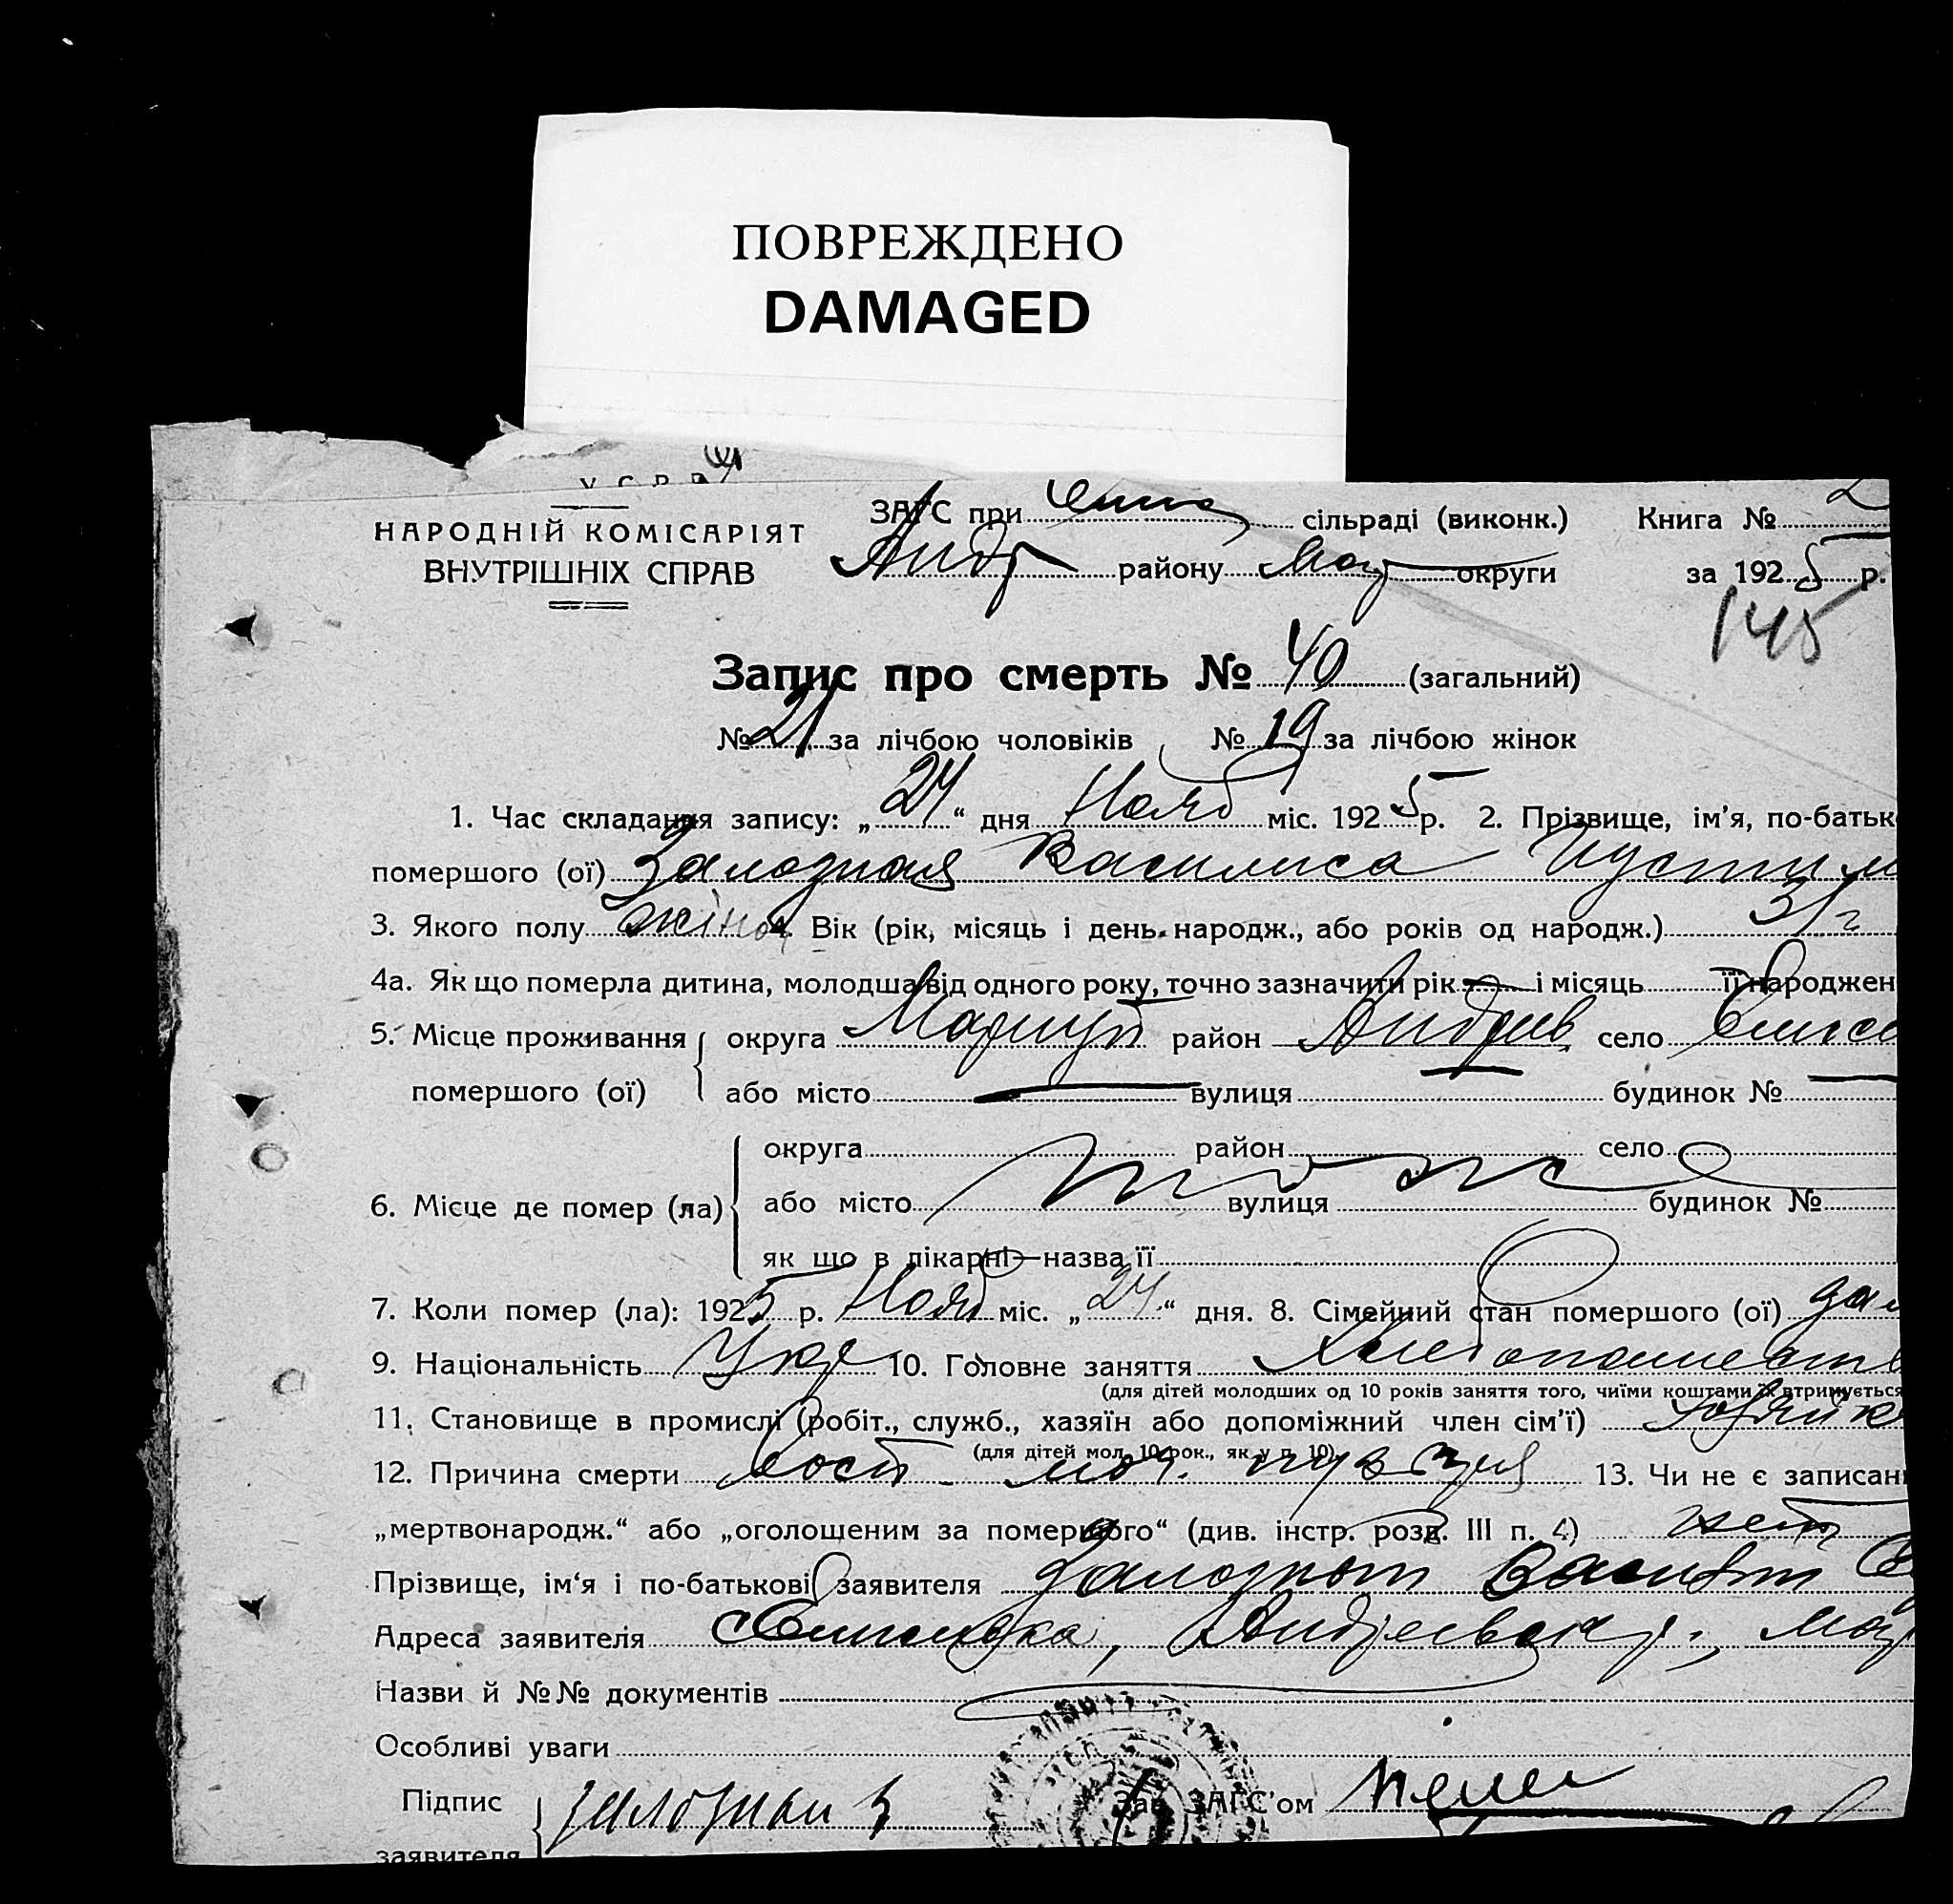 ПОВРЕЖДЕНО
DAMAGED
У С Р Р
НАРОДНІЙ КОМІСАРІЯТ
ВНУТРІШНІХ СПРАВ
ЗАГС при сільраді (виконк.) Книга № 2
Андр району Мар округи за 1925 р.
145
Запис про смерть № 40 (загальний)
№ 21 за лічбою чоловіків № 19 за лічбою жінок
1. Час складання запису: „24“ дня Нояб міс. 1925 р. 2. Прізвище, ім'я, по-батьк
помершого (ої) Залозная Василиса Иустим
3. Якого полу жіноч 4. Вік (рік, місяць і день народж., або років од народж.) 31 г
4а. Як що померла дитина, молодша від одного року, точно зазначити рік — і місяць її народжен
5. Місце проживання помершого (ої) округа Мариуп район Андреев село Елисе
або місто — вулиця — будинок № —
6. Місце де помер (ла) округа район село
або місто тоже вулиця будинок №
як що в лікарні—назва її
7. Коли помер (ла): 1925 р. Нояб міс. „24“ дня. 8. Сімейний стан помершого (ої) зам
9. Національність Укр 10. Головне заняття Хлебопашеств
(для дітей молодших од 10 років заняття того, чиїми коштами їх втримується
11. Становище в промислі (робіт., служб., хазяїн або допоміжний член сім'ї)
(для дітей мол. 10 рок., як у п. 10)
12. Причина смерти Восп. моч. пузыря 13. Чи не є записан
„мертвонародж.“ або „оголошеним за помершого“ (див. інстр. розд. III п. 4) нет
Прізвище, ім‘я і по-батькові заявителя Залозный
Адреса заявителя Андреевск р., Мар
Назви й №№ документів
Особливі уваги
Підпис заявителя Залозный Зав. ЗАГС'ом